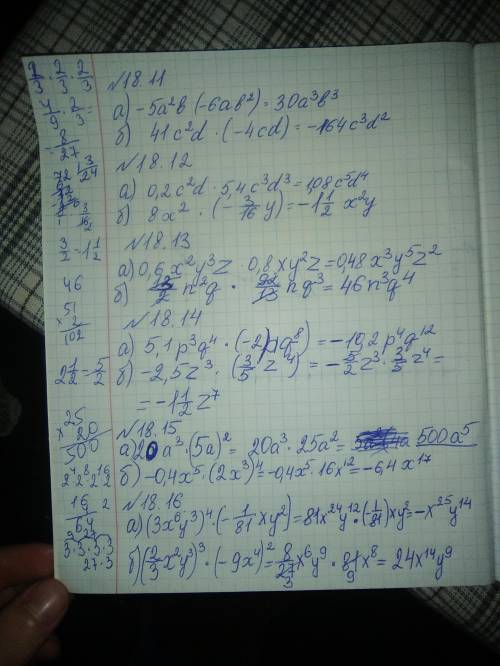 2/3 · 2/3 · 2/3
4/9 · 2/3 =
8/27
72 | 3
24
3/2 = 1 1/2
46
51
× 2
102
2 1/2 = 5/2
25
× 20
500
2⁴ 2⁸ 2¹² 2¹⁶
16
64
3·3·3·3
27·3
№18.11
а) -5a²b (-6ab²) = 30a³b³
б) 41c²d · (-4cd) = -164c³d²
№18.12
а) 0,2c²d · 5,4c³d³ = 1,08c⁵d⁴
б) 8x² · (-3/16 y) = -1 1/2 x²y
№18.13
а) 0,6x²y³z 0,8xy²z = 0,48x³y⁵z²
б) 13/2 n²q · 92/13 nq³ = 46n³q⁴
№18.14
а) 5,1p³q⁴ · (-2pq⁸) = -10,2p⁴q¹²
б) -2,5z³ · (3/5 z⁴) = -5/2 z³ · 3/5 z⁴ =
= -1 1/2 z⁷
№18.15
а) 20a³ · (5a)² = 20a³ · 25a² = 500a⁵
б) -0,4x⁵ · (2x³)⁴ = -0,4x⁵ · 16x¹² = -6,4x¹⁷
№18.16
а) (3x⁶y³)⁴ · (-1/81 xy²) = 81x²⁴y¹² · (-1/81) xy² = -x²⁵y¹⁴
б) (2/3 x²y³)³ · (-9x⁴)² = 8/27 x⁶y⁹ · 81x⁸ = 24x¹⁴y⁹